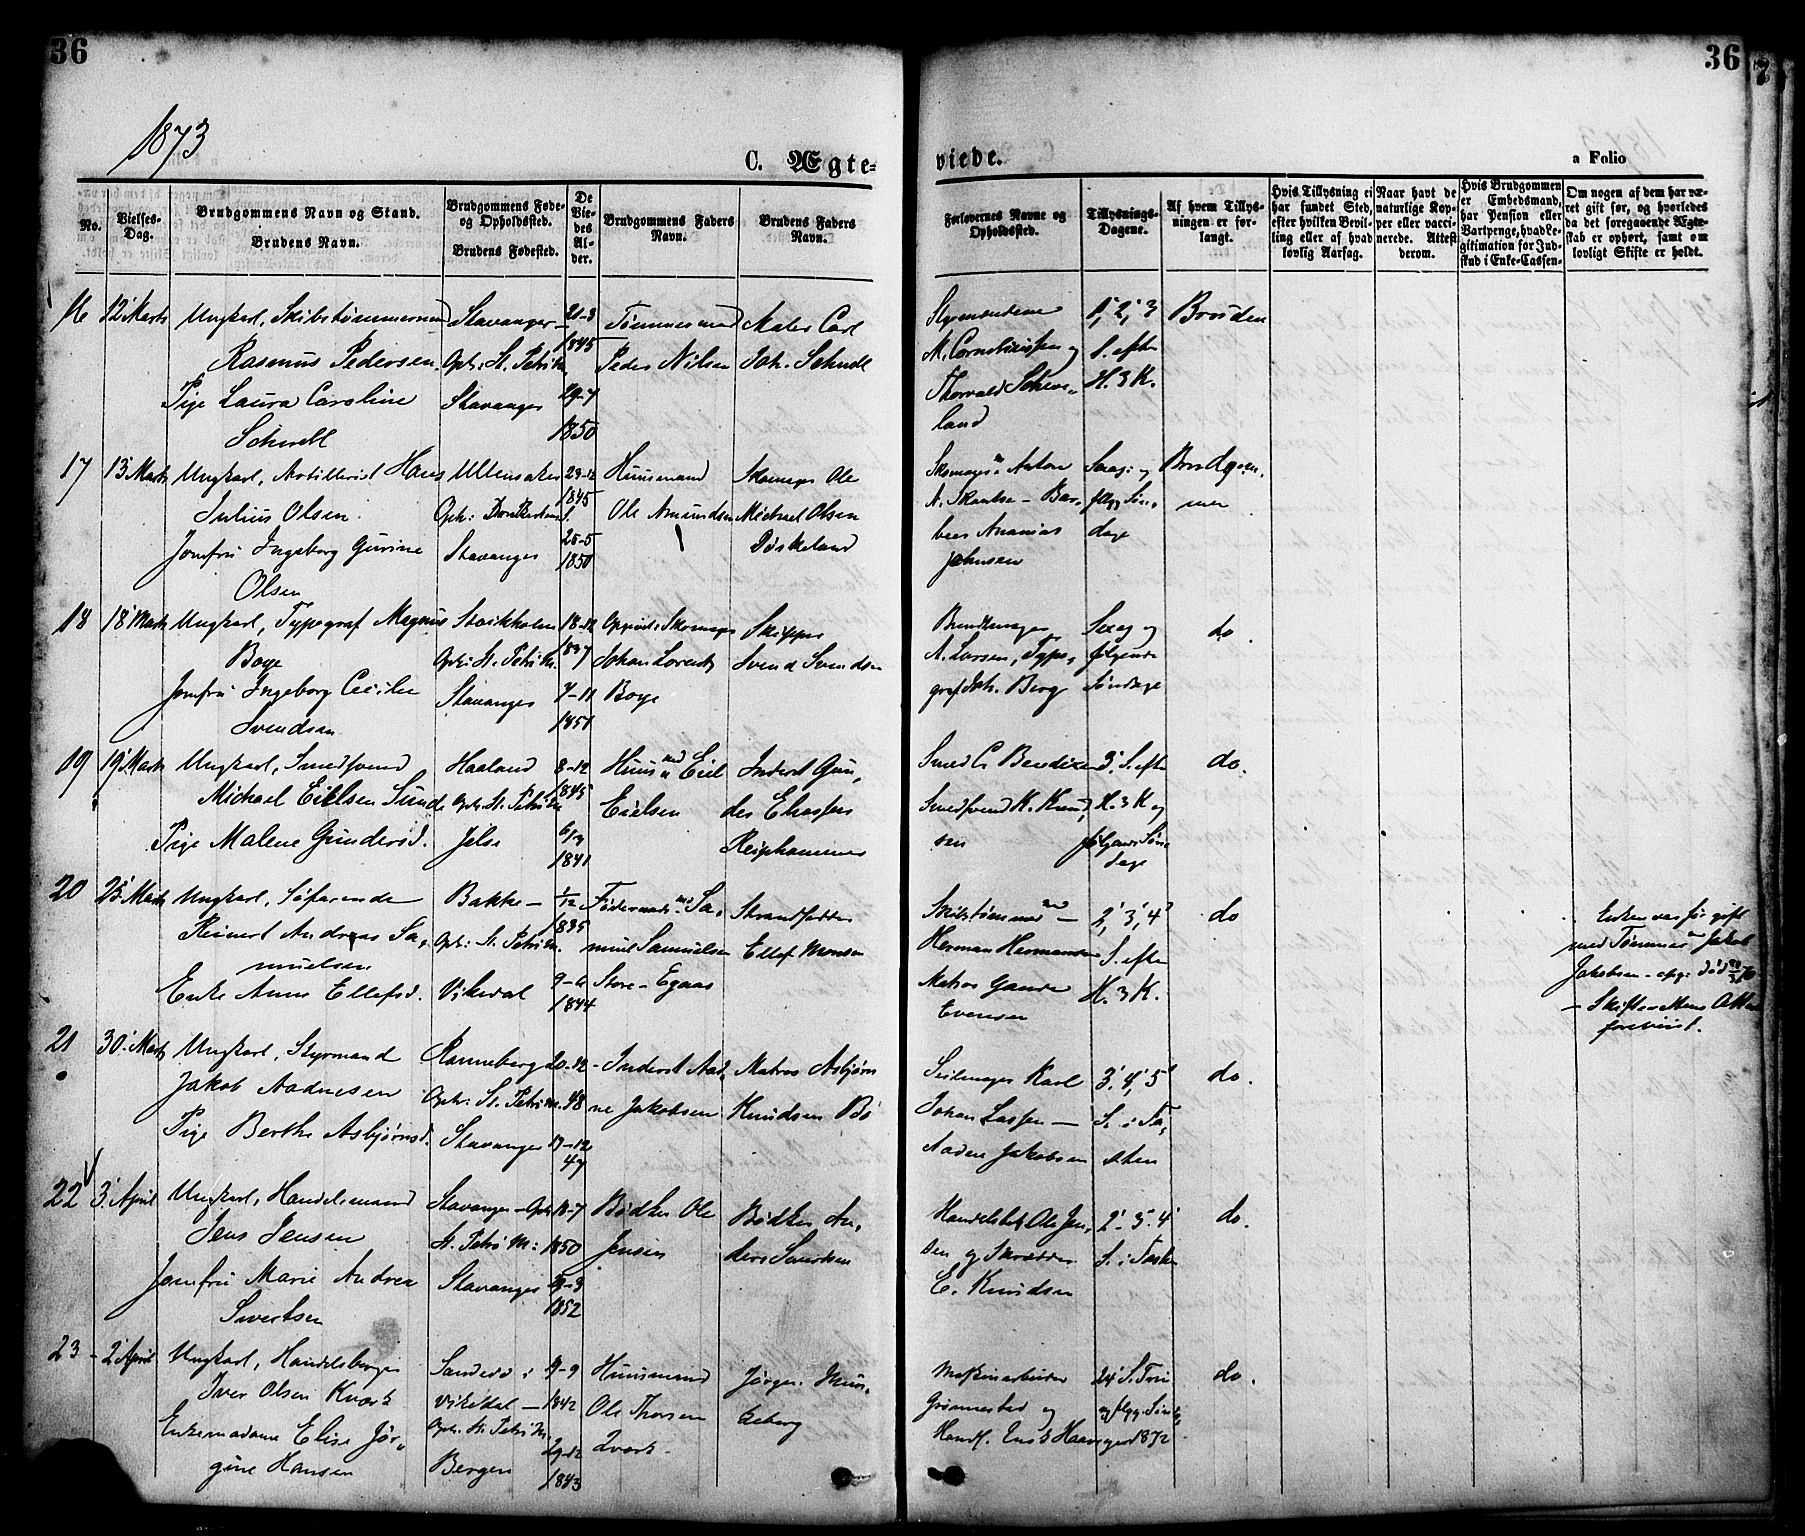 36
36
1873
C. Ægte-
viede.
a Folio
No.
Vielses-
Dag.
Brudgommens Navn og Stand.
Brudens Navn.
Brudgommens Føde-
og Opholdssted.
Brudens Fødested.
De
Vie-
des
Al-
der.
Brudgommens Faders
Navn.
Brudens Faders
Navn.
Forlovernes Navne og
Opholdssted.
Tillysnings-
Dagene.
Af hvem Tillys-
ningen er for-
langt.
Hvis Tillysning ei
har fundet Sted,
efter hvilken Bevil-
ling eller af hvad
lovlig Aarsag.
Naar havt de
naturlige Kop-
per eller vacci-
nerede. Attest
derom.
Hvis Brudgommen
er Embedsmand,
har Pension eller
Vartpenge, hvad Le-
gitimation for Ind-
skud i Enke-Cassen-
Om nogen af dem har væ-
ret gift før, og hvorledes
da det foregaaende Ægte-
skab er ophørt, samt om
lovligt Skifte er holdt.
16
12 Marts
Ungkarl, Skibstømmermand
Rasmus Pedersen
Pige Laura Caroline
Schwell
Stavanger
Oph: St. Petri M.
Stavanger
21-3
1845
29-7
1850
Tømmermand
Peder Nilsen
Maler Carl
Joh. Schwell
Styrmændene
M. Corneliussen og
Thorvald
land
1, 2, 3
S. efter
H. 3 K.
Bruden
17
13 Marts
Ungkarl, Artillerist Hans
Julius Olsen.
Jomfru Ingeborg Gurine
Olsen
Ullensaker
Oph:
Stavanger
23-12
1845
25-5
1850
Huusmand
Ole Amundsen
Skomager Ole
Michael Olsen
Skomager Anton
Ananias
Johnsen
Sexag: og
følgg Søn-
dage
Brudgom-
men
18
18 Marts
Ungkarl, Typograf Magnus
Boye
Jomfru Ingeborg Cecilie
Svendsen
Stockholm
Oph: St. Petri M.
Stavanger
18-12
1837
7-11
1851
Skomager
Johan Lorentz
Boye
Skipper
Svend Svendsen
A. Larsen, Typo-
graf Joh. Berg
Sexag og
følgende
Søndage
do
19
19 Marts
Ungkarl, Smedsvend
Michael Eielsen Sunde
Pige Malene Gundersd.
Haaland
Oph: St. Petri M
Jelse
8-12
1845
6/3
1841
Huusmd Eiel
Eielsen
Inderst Gun-
der
Smed C Bendixen
Smedsvend K. Knud-
sen
3' S. efter
H. 3 K og
følgende Søn-
dage
do.
20
25 Marts
Ungkarl, Søfarende
Reinert Andreas Sa-
muelsen
Enke Anne Ellefsd.
Bakke -
Oph: St. Petri M.
Vikedal
1/12
1835
9-6
1844
Sa-
muel Samuelsen
Store-Egaas
Strandsidder
Ellef Monsen
Skibstømmermd -
Herman Hermansen
Matros Gaude
Evensen
2', 3', 4'
S. efter
H. 3 K.
do
Enken var før gift
med Tømmermd Jakob
Jakobsen
foreviist.
21
30 Marts
Ungkarl, Styrmand
Jakob Aadnesen
Pige Berthe Asbjørnsd.
Ranneberg
Oph: St. Petri M.
Stavanger
20-12
48
13-12
47
Inderst Aad-
ne Jakobsen
Matros Asbjørn
Knudsen Bø
Seilmager Karl
Johan Lassen -
Aadne Jakobsen
3', 4', 5'
S. i Fa-
sten
do.
22
3' April
Ungkarl, Handelsmand
Jens Jensen
Jomfru Marie Andrea
Sivertsen
Stavanger - Oph:
St. Petri M:
Stavanger
18-7
1850
3
1852
Bødker Ole
Jensen
Bødker An-
ders Sivertsen
Ole Jen-
sen og Skrædder
E. Knudsen
2'. 3. 4'
S. i Faste
do.
23
2' April
Ungkarl, Handelsborger
Iver Olsen Kvark
Enkemadame Elise Jør-
gine Hansen
Sandeid i
Vikedal -
Oph: St. Petri M.
Bergen
9-9
1842
29-12
1843
Huusmand
Ole Thorsen
Jørgen Mun-
keberg
Maskinarbeider
Grønnestad og
24' S. Tri
1872
do.